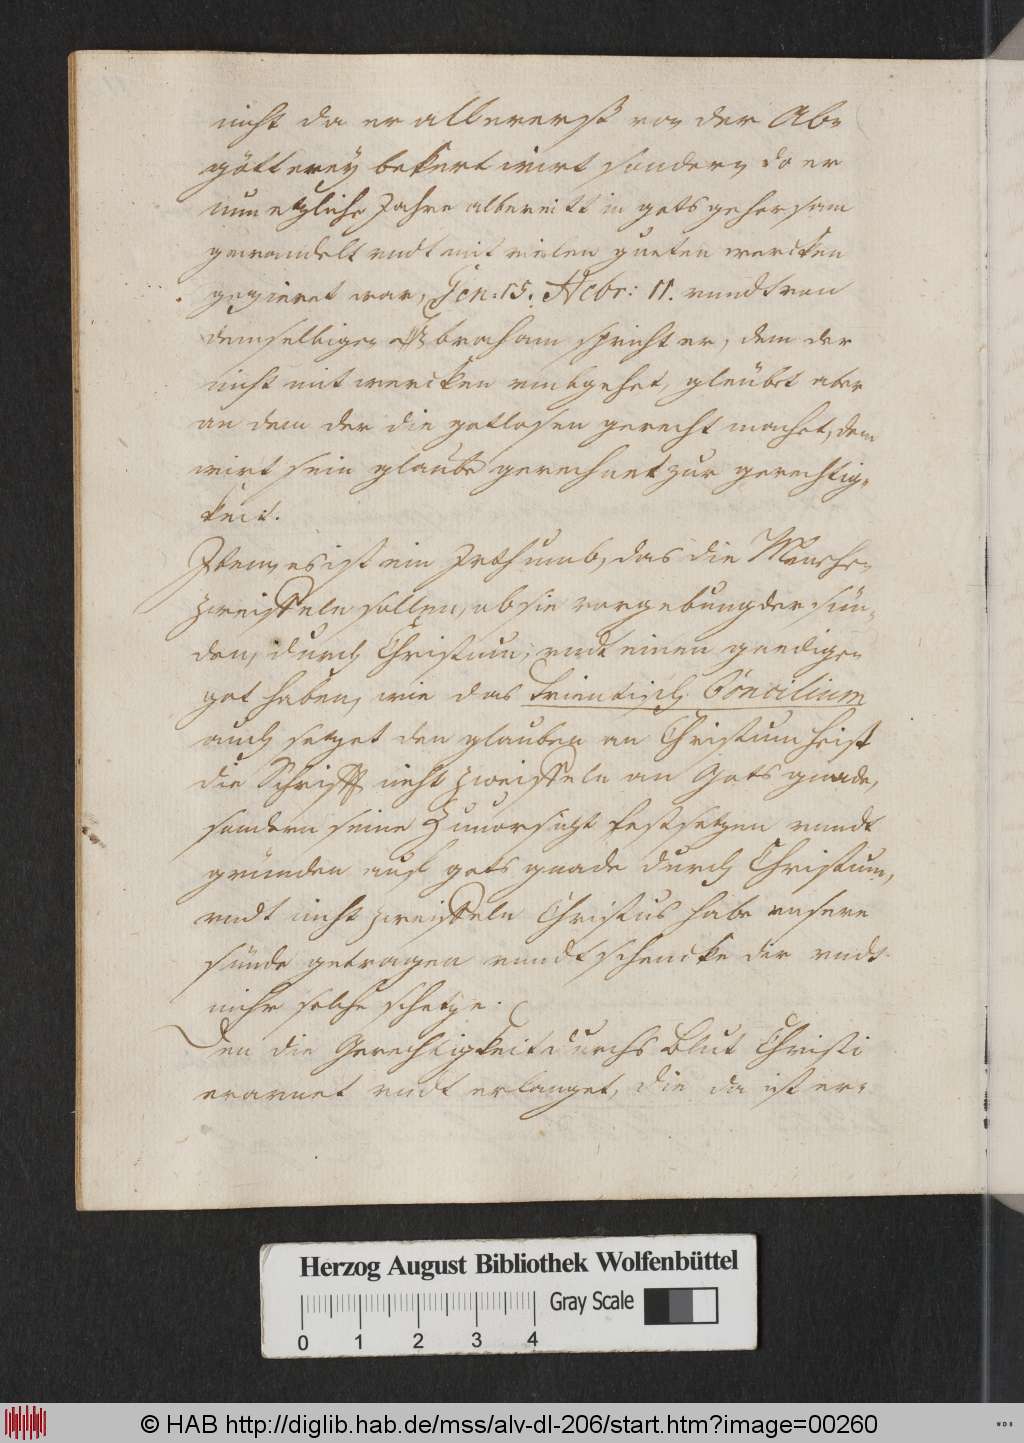 nicht da er allererst von der Ab-
götterey bekert wirt sondern do er
nun etzliche Jahre albereitt in gots gehorsam
gewandelt vndt mit vielen gueten wercken
gezieret war, Gen: 15. Hebr: 11. vnndt von
demselbigen Abraham spricht er, dem der
nicht mit wercken vmbgehet, gleubet aber
an dem der die gotlosen gerecht machet, dem
wirt sein glaube gerechnet zur gerechtig-
keit.
Item, es ist ein Irthumb, das die Menschen
zweiffeln sollen, ob sie vorgebung der sün-
den, durch Christum, vndt einen gnedigen
got haben, wie das Trientisch Concilium
auch setzet den glauben an Christum heist
die Schrifft nicht zweiffeln an Gots gnade,
sondern seine Zuuorsicht festsetzen vnndt
gründen auf gots gnade durch Christum,
vndt nicht zweiffeln Christus habe vnsere
sünde getragen vnndt schencke dir vndt
mihr solche schetze.
Den die Gerechtigkeit durchs Blut Christi
erarnet vndt erlanget, die da ist er-
Herzog August Bibliothek Wolfenbüttel
Gray Scale
0 1 2 3 4
© HAB http://diglib.hab.de/mss/alv-dl-206/start.htm?image=00260